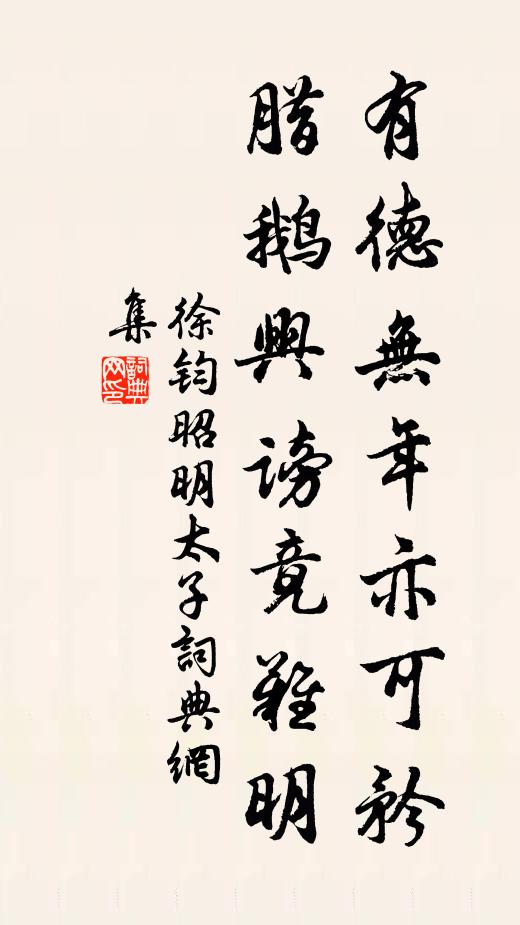 有德無年亦可矜
腊鹅興謗竟難明
徐鈞昭明太子詞典網
集
詞典網印